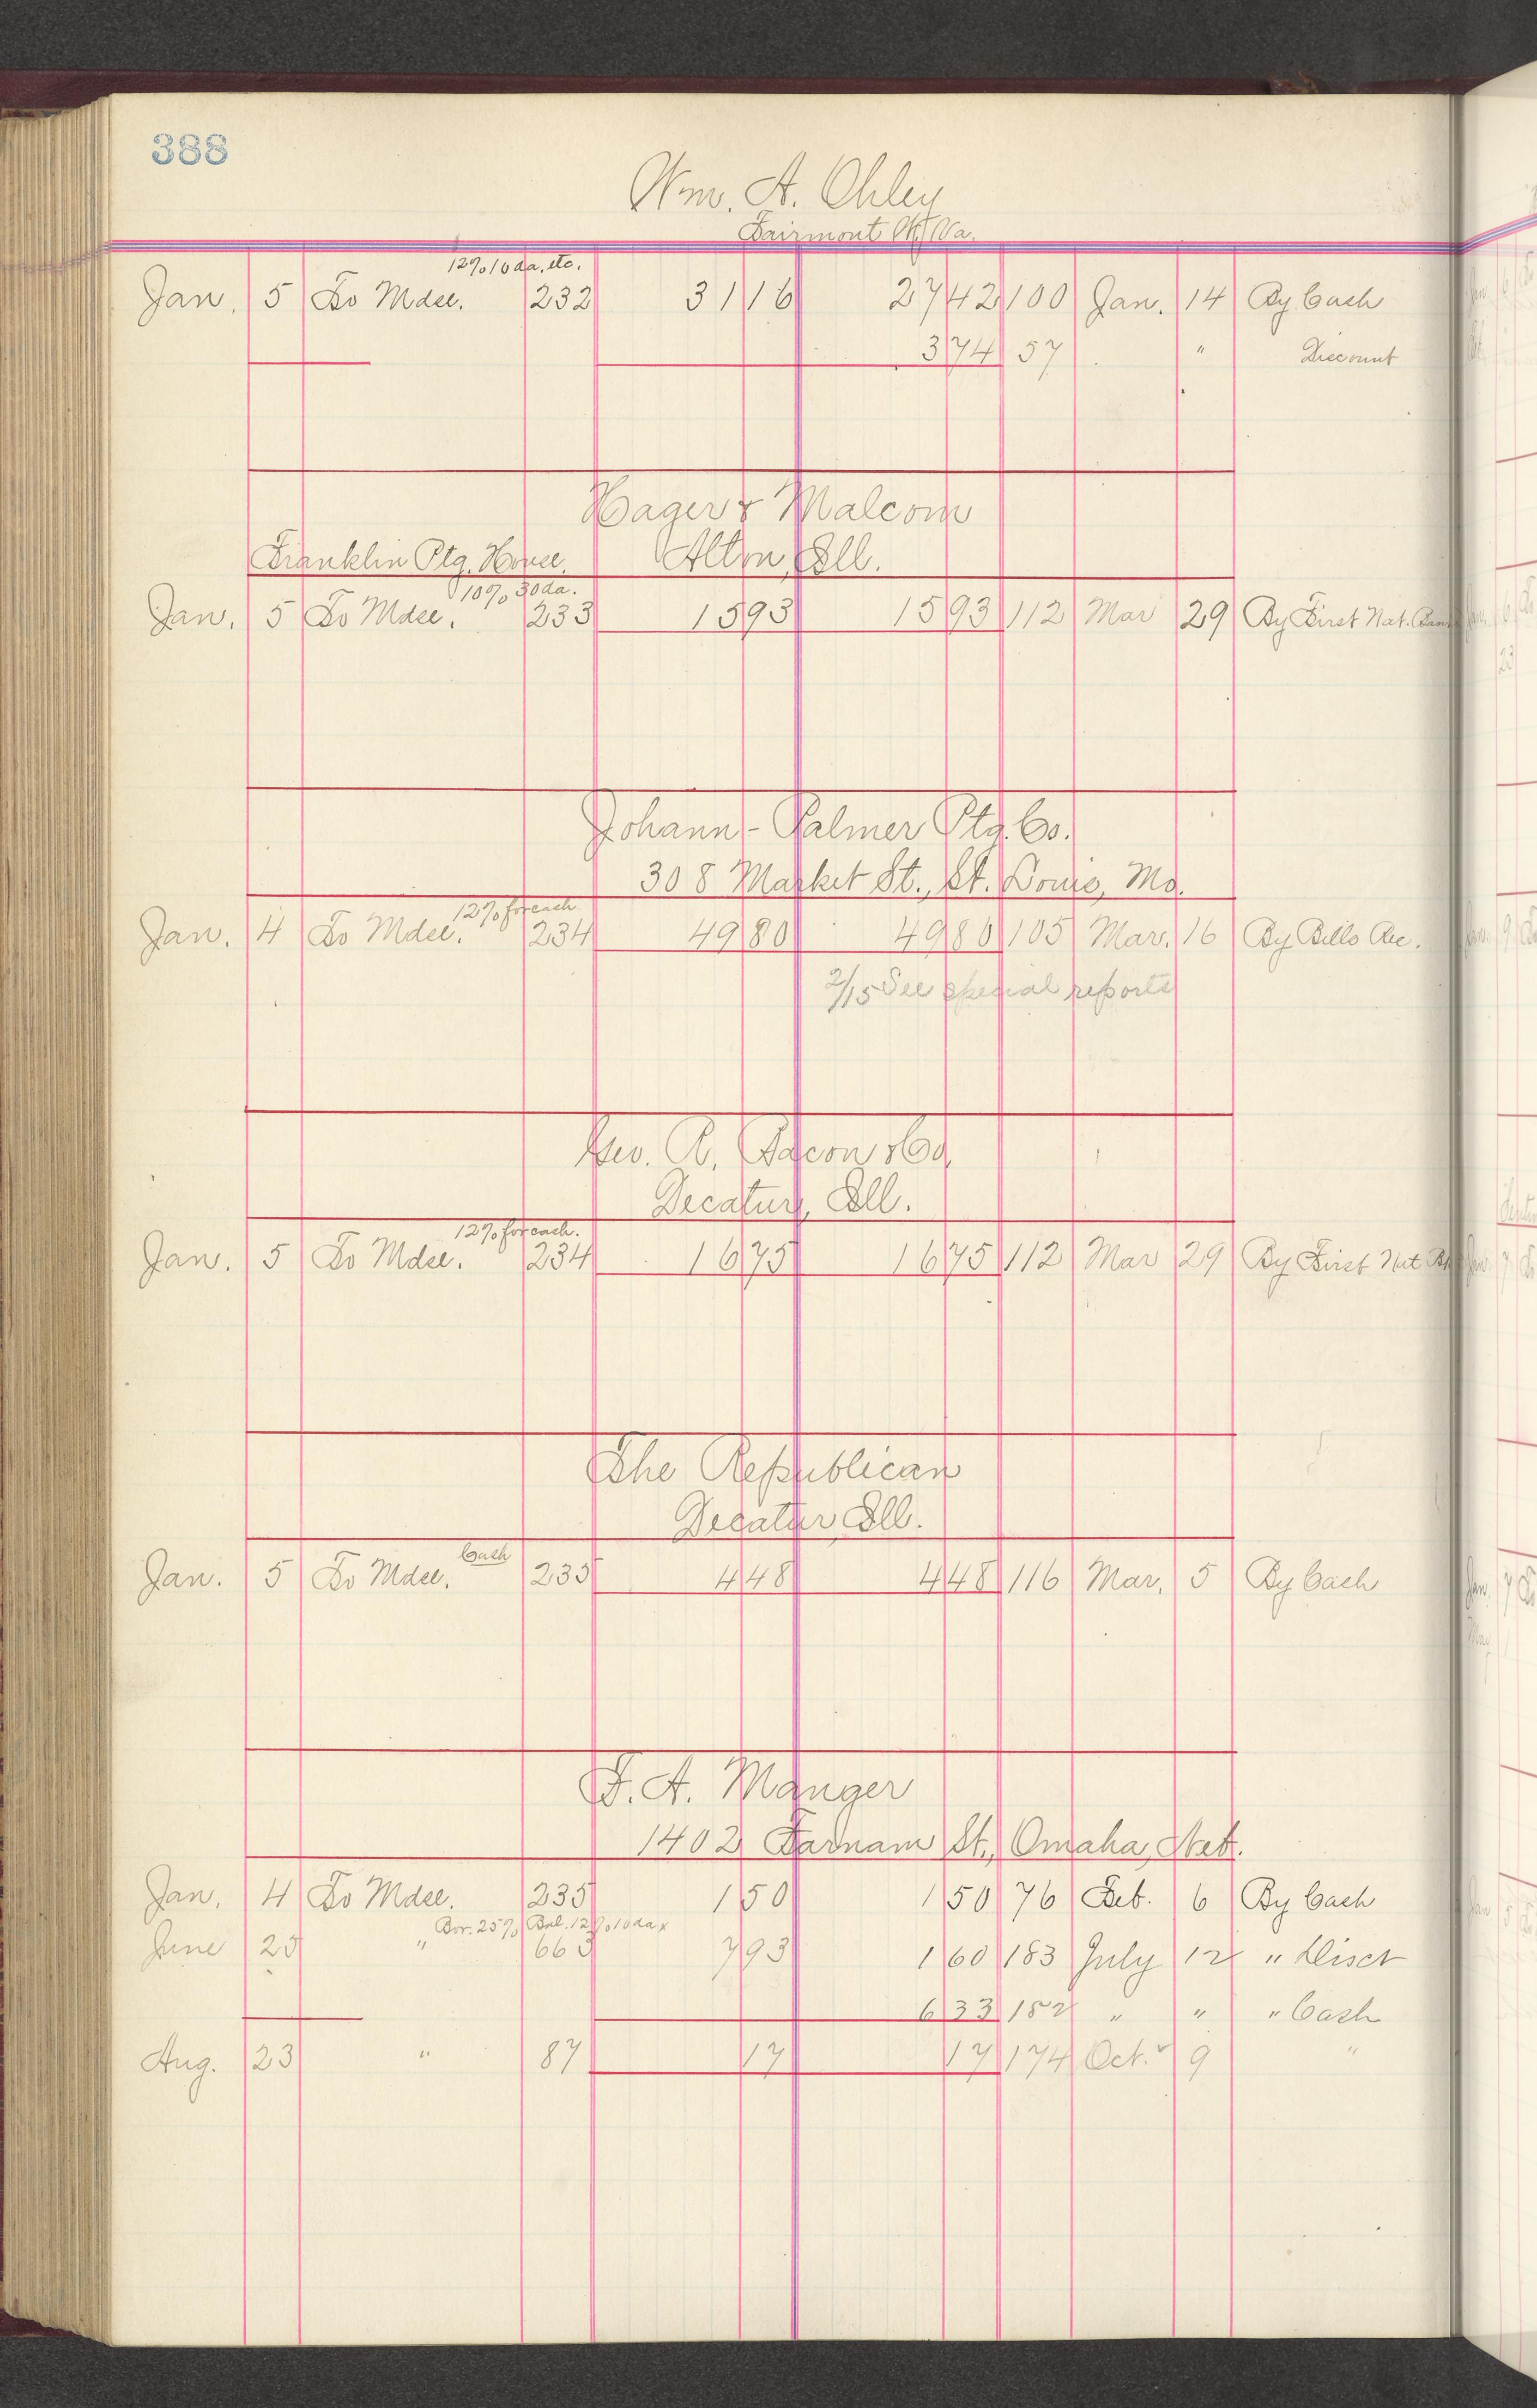 388
Wm. A. Ohley
Fairmont W. Va.
12% 10 da. etc.
Jan. 5 To Mdse. 232 31 16 27 42 100 Jan. 14 By Cash
3 74 57 " Discount
Hager & Malcom
Franklin Ptg. House. Alton, Ill.
10% 30 da.
Jan. 5 To Mdse. 233 15 93 15 93 112 Mar 29 By First Nat. Bank
Johann-Palmer Ptg. Co.
308 Market St., St. Louis, Mo.
12% for cash
Jan. 4 To Mdse. 234 49 80 49 80 105 Mar. 16 By Bills Rec.
2/15 See special reports
Geo. R. Bacon & Co.
Decatur, Ill.
12% for cash.
Jan. 5 To Mdse. 234 16 75 16 75 112 Mar 29 By First Nat Bk
The Republican
Decatur, Ill.
Cash
Jan. 5 To Mdse. 235 4 48 4 48 116 Mar. 5 By Cash
F. A. Manger
1402 Farnam St., Omaha, Neb.
Jan. 4 To Mdse. 235 1 50 1 50 76 Feb. 6 By Cash
Bor. 25% Bal. 12% 10 da x
June 25 " 663 7 93 1 60 183 July 12 " Disct
6 33 182 " " " Cash
Aug. 23 " 87 17 17 174 Oct. 9 "